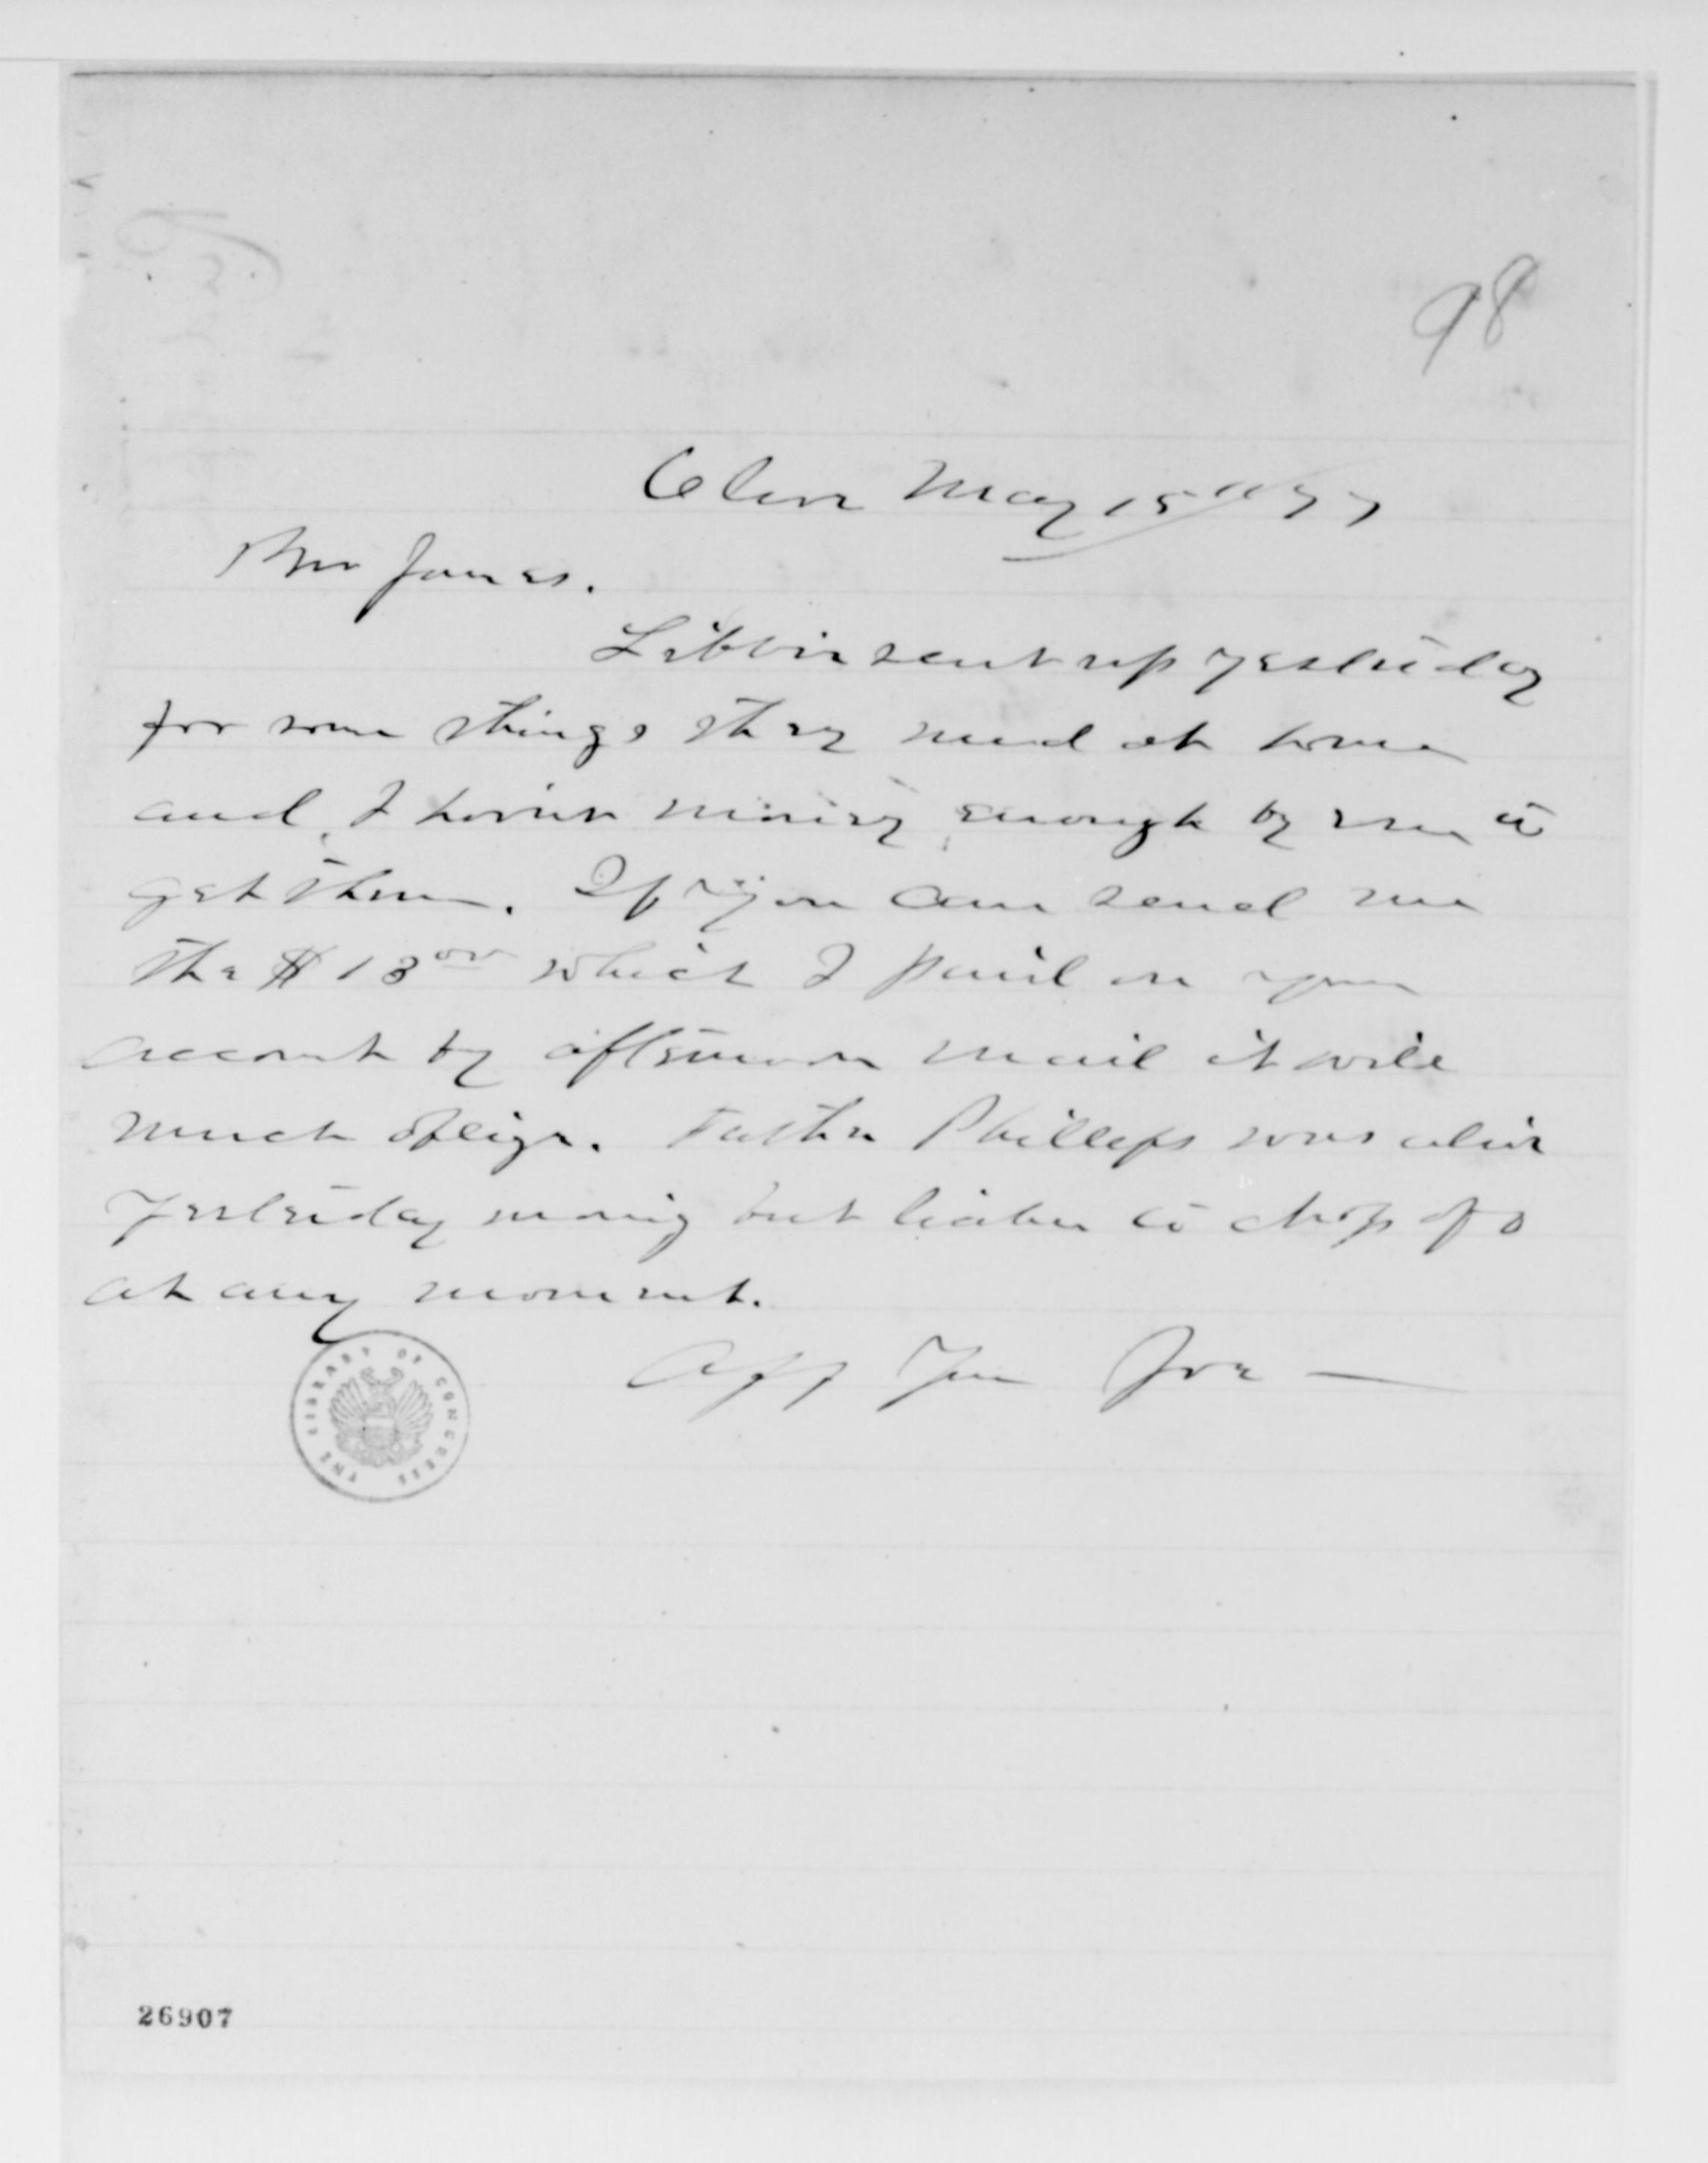 98
Cleve May 15th 77
Bro James.
Libbie sent up yesterday
for some things they need at home
and I havnt money enough by me to
get them. If you can send me
the $13 00 which I paid on your
account by afternoon mail it will
much oblige. Father Phillips was alive
yesterday morning but liable to drop off
at any moment.
Aff Yours Joe
THE LIBRARY OF CONGRESS
26907